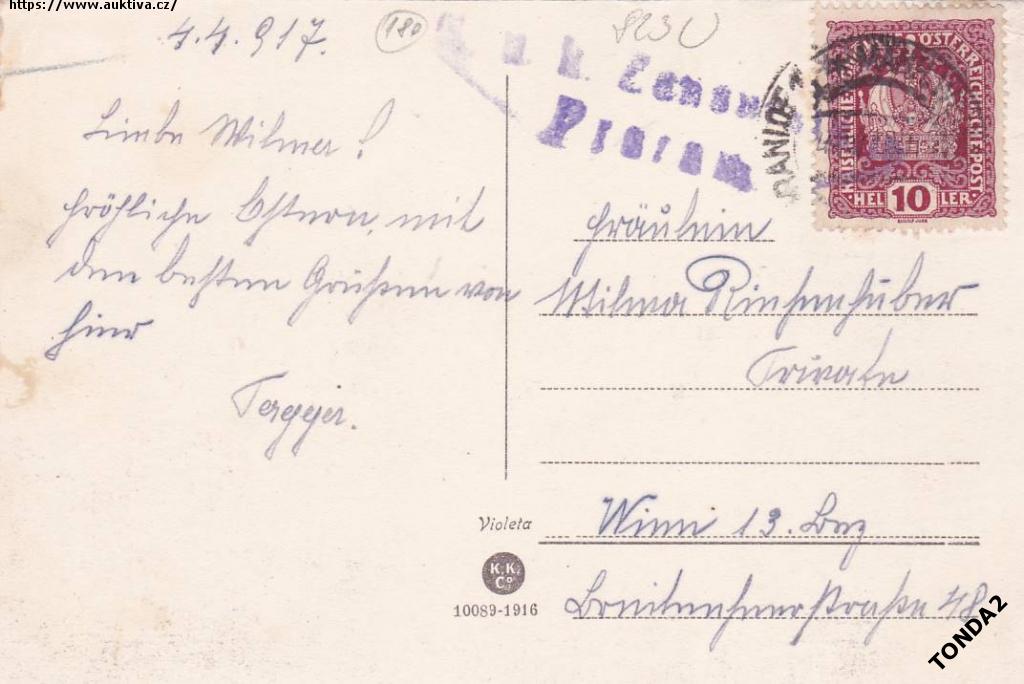 https://www.auktiva.cz/
4.4.917.
180
823
k. Zensur
RANIDE
KAISERLICHE KÖNIGLICHE ÖSTERREICHISCHE POST
HELLER
10
Liebe Wilma!
fröhliche Ostern, mit
den besten Grüßen von
hier
Fräulein
Wilma Riesenhuber
Private
Wien 13. Bez
Breitenseerstraße 48
Violeta
K.K.
Co
10089-1916
TONDA2